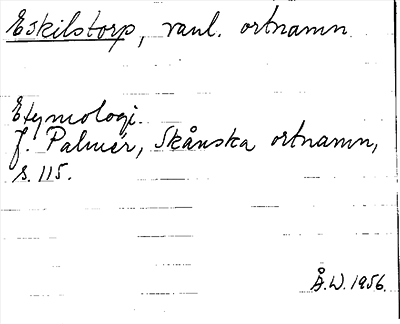 Eskilstorp, vanl. ortnamn
Etymologi.
J. Palmér, Skånska ortnamn,
s. 115.
Å.W. 1956.